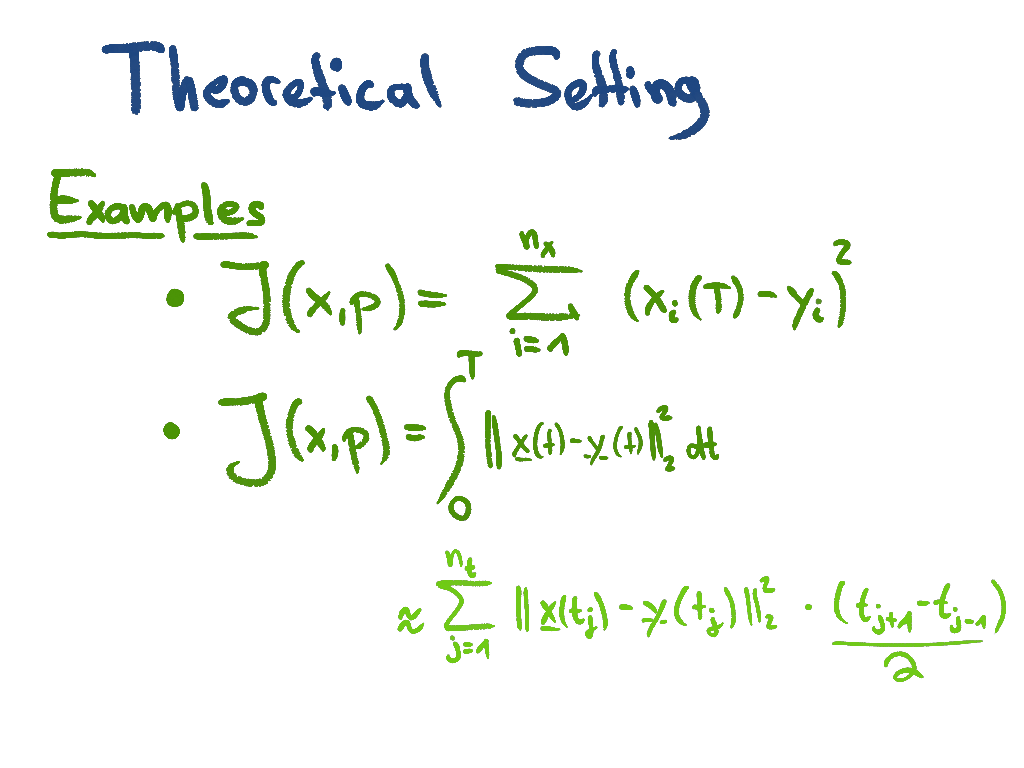 Theoretical Setting
Examples
• J(x,p) = \sum_{i=1}^{n_x} (x_i(T) - y_i)^2
• J(x,p) = \int_0^T \| \underline{x}(t) - \underline{y}(t) \|_2^2 dt
≈ \sum_{j=1}^{n_t} \| \underline{x}(t_j) - \underline{y}(t_j) \|_2^2 · \frac{(t_{j+1} - t_{j-1})}{2}